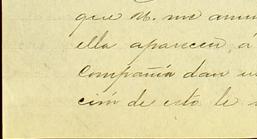 que V. me anun
ella aparecen, á
Compañía dan
ción de esto le